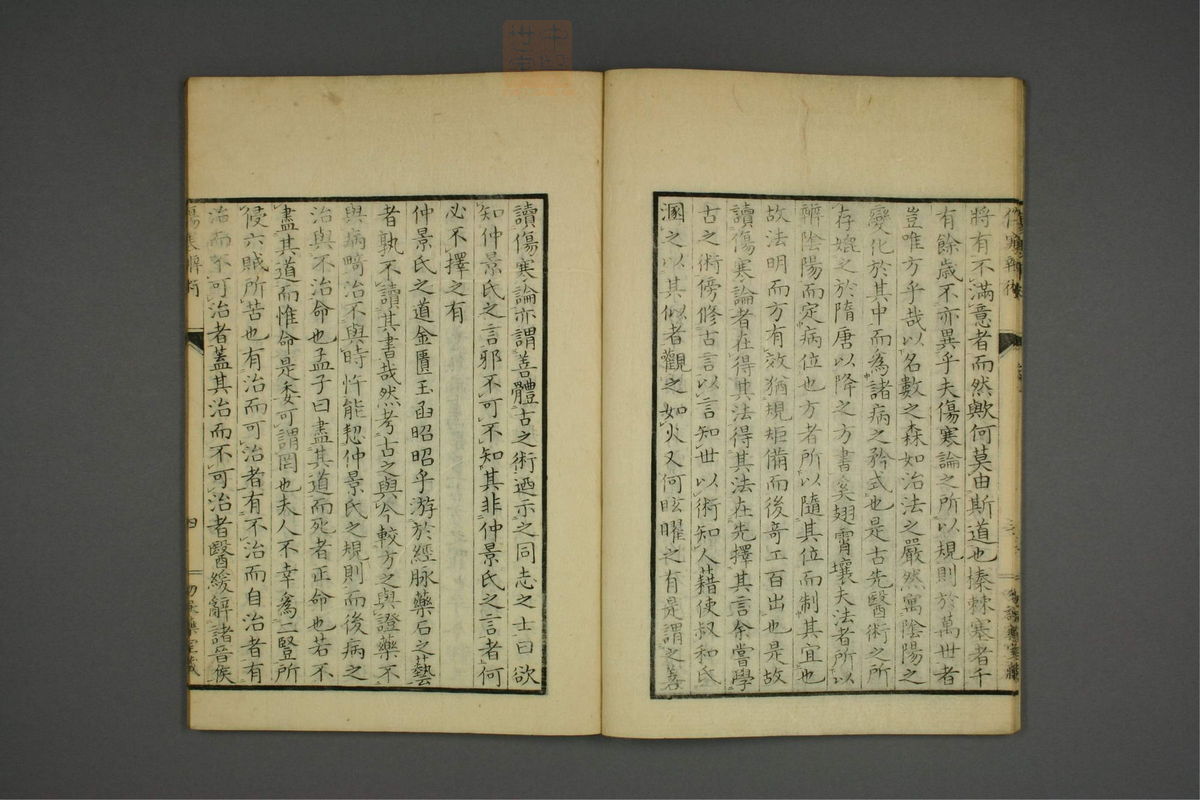 將有不滿意者而然歟何莫由斯道也榛棘塞者千
有餘歲不亦異乎夫傷寒論之所以規則於萬世者
豈唯方乎哉以名數之森如治法之嚴然寓陰陽之
變化於其中而為諸病之矜式也是古先醫術之所
存媲之於隋唐以降之方書奚翅霄壤夫法者所以
辨陰陽而定病位也方者所以隨其位而制其宜也
故法明而方有效猶規矩備而後奇工百出也是故
讀傷寒論者在得其法得其法在先擇其言余嘗學
古之術傍修古言以言知世以術知人藉使叔和氏
溷之以其似者觀之如火又何眩曜之有是謂之善
讀傷寒論亦謂善體古之術迺示之同志之士曰欲
知仲景氏之言邪不可不知其非仲景氏之言者何
必不擇之有
仲景氏之道金匱玉函昭昭乎游於經脉藥石之藝
者孰不讀其書哉然考古之與今較方之與證藥不
與病畸治不與時忤能恝仲景氏之規則而後病之
治與不治命也孟子曰盡其道而死者正命也若不
盡其道而惟命是委可謂罔也夫人不幸為二豎所
侵六賊所苦也有治而可治者有不治而自治者有
治而不可治者蓋其治而不可治者醫緩辭諸晉侯
傷寒辨術
四